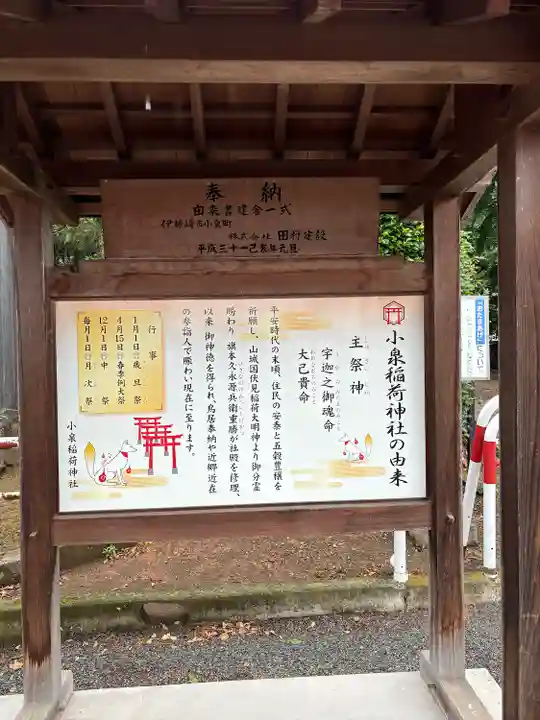 奉納
由来書建舎一式
伊勢崎市小泉町
株式会社 田村建設
平成三十一己亥年元旦
小泉稲荷神社の由来
主祭神
しゅさいしん
宇迦之御魂命
うかのみたまのみこと
大己貴命
おおなむちのみこと
平安時代の末頃、住民の安泰と五穀豊穣を
祈願し、山城国伏見稲荷大明神より御分霊
賜わり、旗本久永源兵衛重勝が社殿を修理、
以来、御神徳を得られ、鳥居奉納や近郷近在
の参詣人で賑わい現在に至ります。
行事
1月1日 歳旦祭
4月15日 春季例大祭
12月1日 中祭
毎月1日 月次祭
小泉稲荷神社
「おたきあげ」について